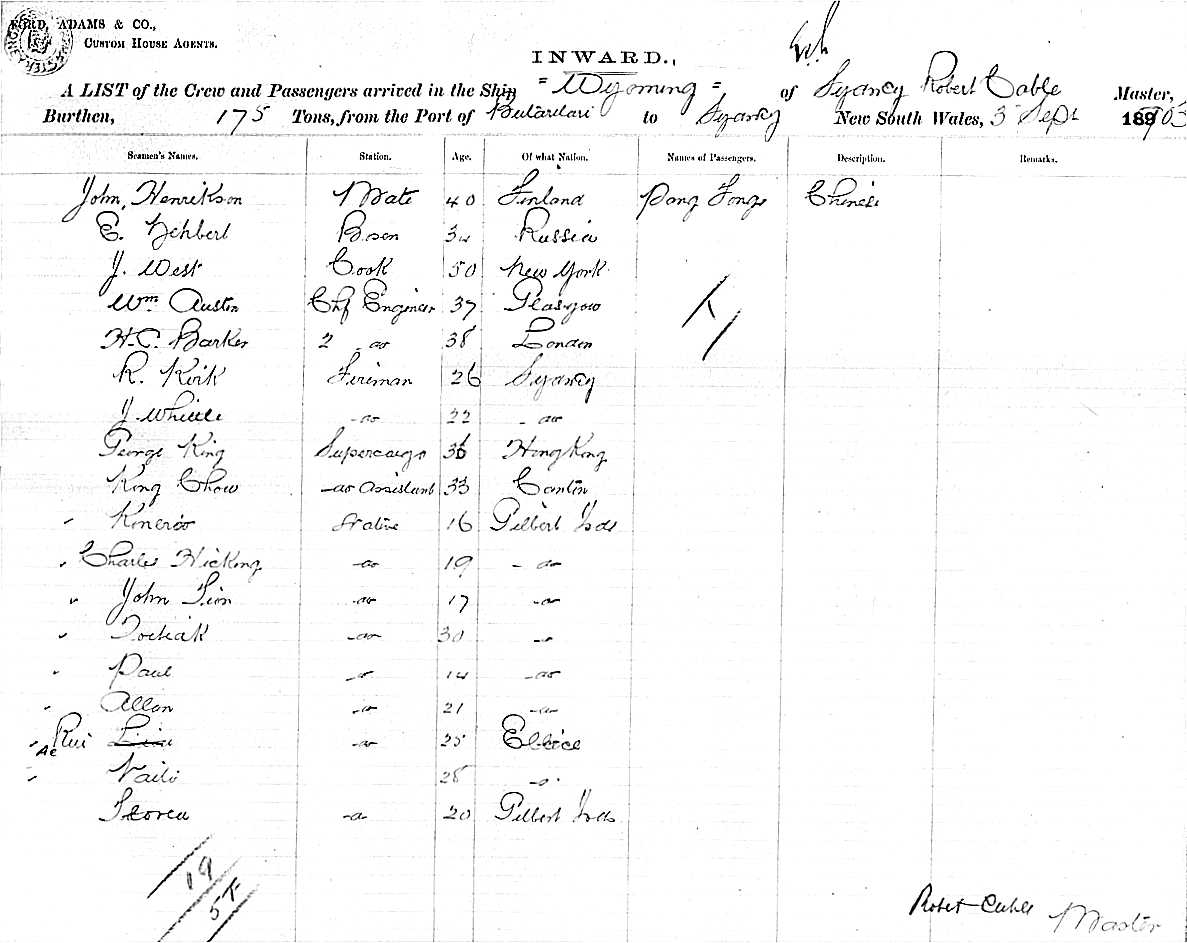 FORD, ADAMS & CO.,
CUSTOM HOUSE AGENTS.
INWARD.,
A LIST of the Crew and Passengers arrived in the Ship "Wyoming" of Sydney Robert Cable Master,
Burthen, 175 Tons, from the Port of Butaritari to Sydney New South Wales, 3 Sept 1903
Seamen's Names. Station. Age. Of what Nation. Names of Passengers. Description. Remarks.
John Henrikson Mate 40 Finland Pang Chinese
E. 34 Russia
J. West Cook 50 New York
Wm Austin Chf Engineer 37 Glasgow
H.C. Barker 2 do 38 London
R. Kirk Fireman 26 Sydney
J. do 22 do
George King Supercargo 36 HongKong
Kong Chow do Assistant 33 Canton
Native 16 Gilbert Isds
Charles Hickong do 19 do
John do 17 do
do 30 do
Paul do 14 do
Allan do 21 do
do 25 Ellice
28 do
do 20 Gilbert Isds
19
Robert Cable Master